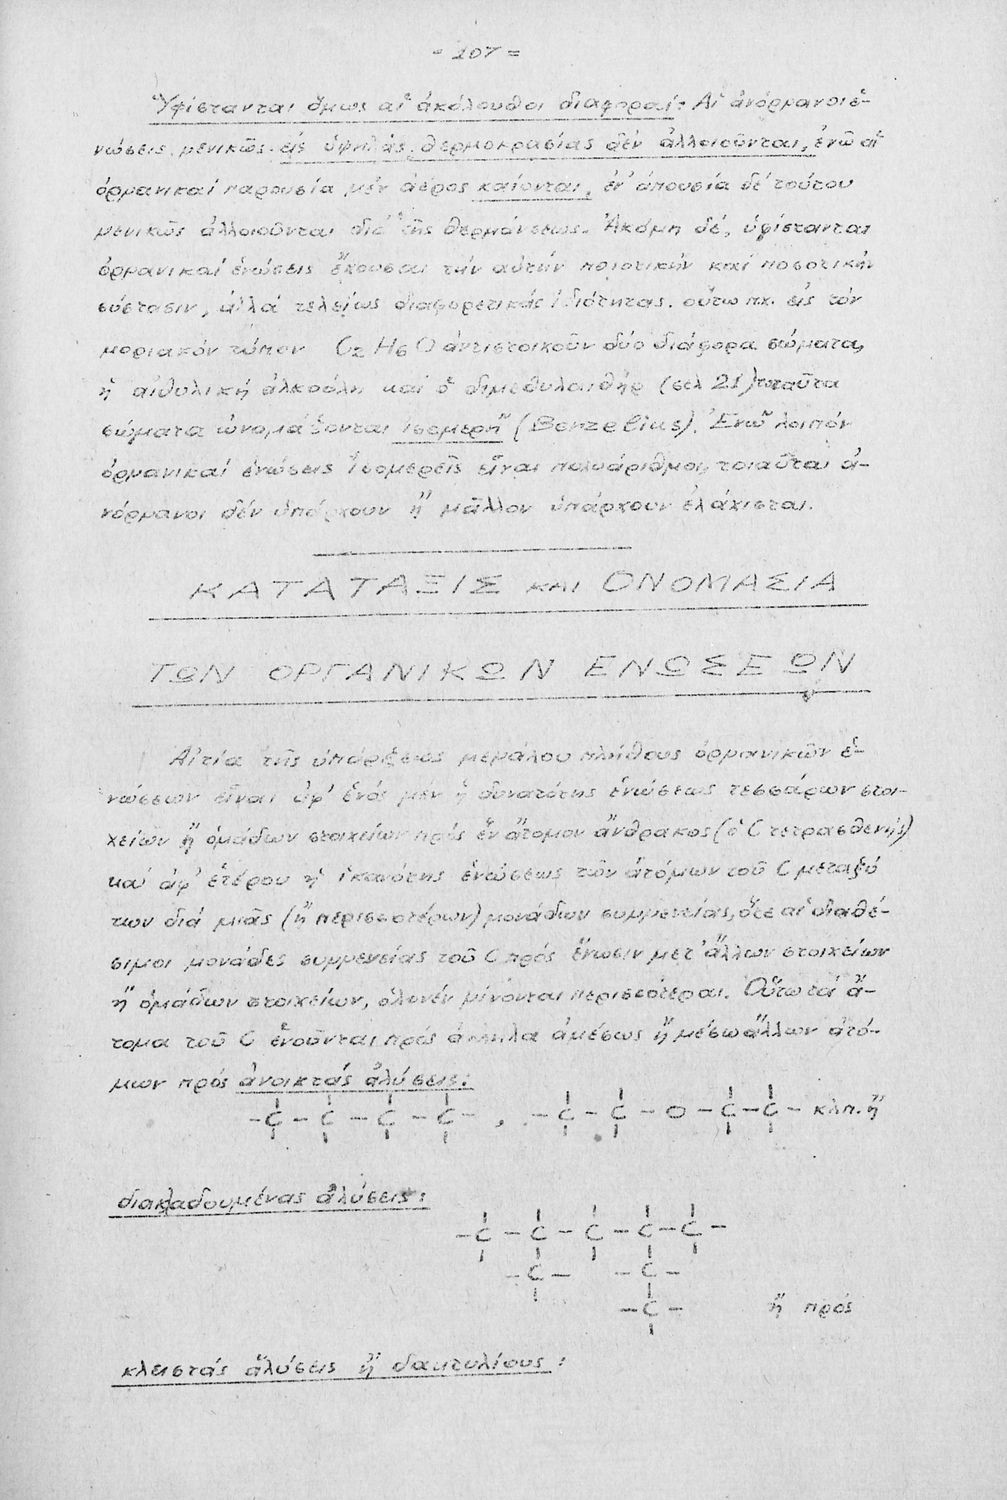 - 107 =
Ὑφίστανται ὅμως αἱ ἀκόλουθοι διαφοραί: Αἱ ἀνόργανοι ἑ-
νώσεις γενικῶς εἰς ὑψηλάς θερμοκρασίας δέν ἀλλοιοῦνται, ἐνῶ αἱ
ὀργανικαί παρουσία μέν ἀέρος καίονται, ἐν ἀπουσία δέ τούτου
γενικῶς ἀλλοιοῦνται διά τῆς θερμάνσεως. Ἀκόμη δέ, ὑφίστανται
ὀργανικαί ἑνώσεις ἔχουσαι τήν αὐτήν ποιοτικήν καί ποσοτικήν
σύστασιν, ἀλλά τελείως διαφορετικάς ἰδιότητας. οὕτω πχ. εἰς τόν
μοριακόν τύπον C2 H6 O ἀντιστοικοῦν δύο διάφορα σώματα,
ἡ αἰθυλική ἀλκοόλη καί ὁ διμεθυλαιθήρ (σελ 21) τοιαῦτα
σώματα ὠνομάζονται ἰσομερῆ (Benzelius). Ἐνῶ λοιπόν
ὀργανικαί ἑνώσεις ἰσομερεῖς εἶναι πολυάριθμοι, τοιαῦται ἀ-
νόργανοι δέν ὑπάρχουν ἤ μᾶλλον ὑπάρχουν ἐλάχισται.
ΚΑΤΑΤΑΞΙΣ ΚΑΙ ΟΝΟΜΑΣΙΑ
ΤΩΝ ΟΡΓΑΝΙΚΩΝ ΕΝΩΣΕΩΝ
Αἰτία τῆς ὑπάρξεως μεγάλου πλήθους ὀργανικῶν ἑ-
νώσεων εἶναι ἀφ' ἑνός μέν ἡ δυνατότης ἑνώσεως τεσσάρων στοι-
χείων ἤ ὁμάδων στοιχείων πρός ἕν ἄτομον ἄνθρακος (ὁ C τετρασθενής)
καί ἀφ' ἑτέρου ἡ ἱκανότης ἑνώσεως τῶν ἀτόμων τοῦ C μεταξύ
των διά μιᾶς (ἤ περισσοτέρων) μονάδων συγγενείας, ὅτε αἱ διαθέ-
σιμοι μονάδες συγγενείας τοῦ C πρός ἕνωσιν μετ' ἄλλων στοιχείων
ἤ ὁμάδων στοιχείων, ὁλονέν γίνονται περισσότεραι. Οὕτω τά ἄ-
τομα τοῦ C ἑνοῦνται πρός ἄλληλα ἀμέσως ἤ μέσω ἄλλων ἀτό-
μων πρός ἀνοικτάς ἁλύσεις:
- C - C - C - C - , - C - C - O - C - C - κλπ. ἤ
διακλαδουμένας ἁλύσεις:
- C - C - C - C - C -
- C - - C -
- C - ἤ πρός
κλειστάς ἁλύσεις ἤ δακτυλίους: